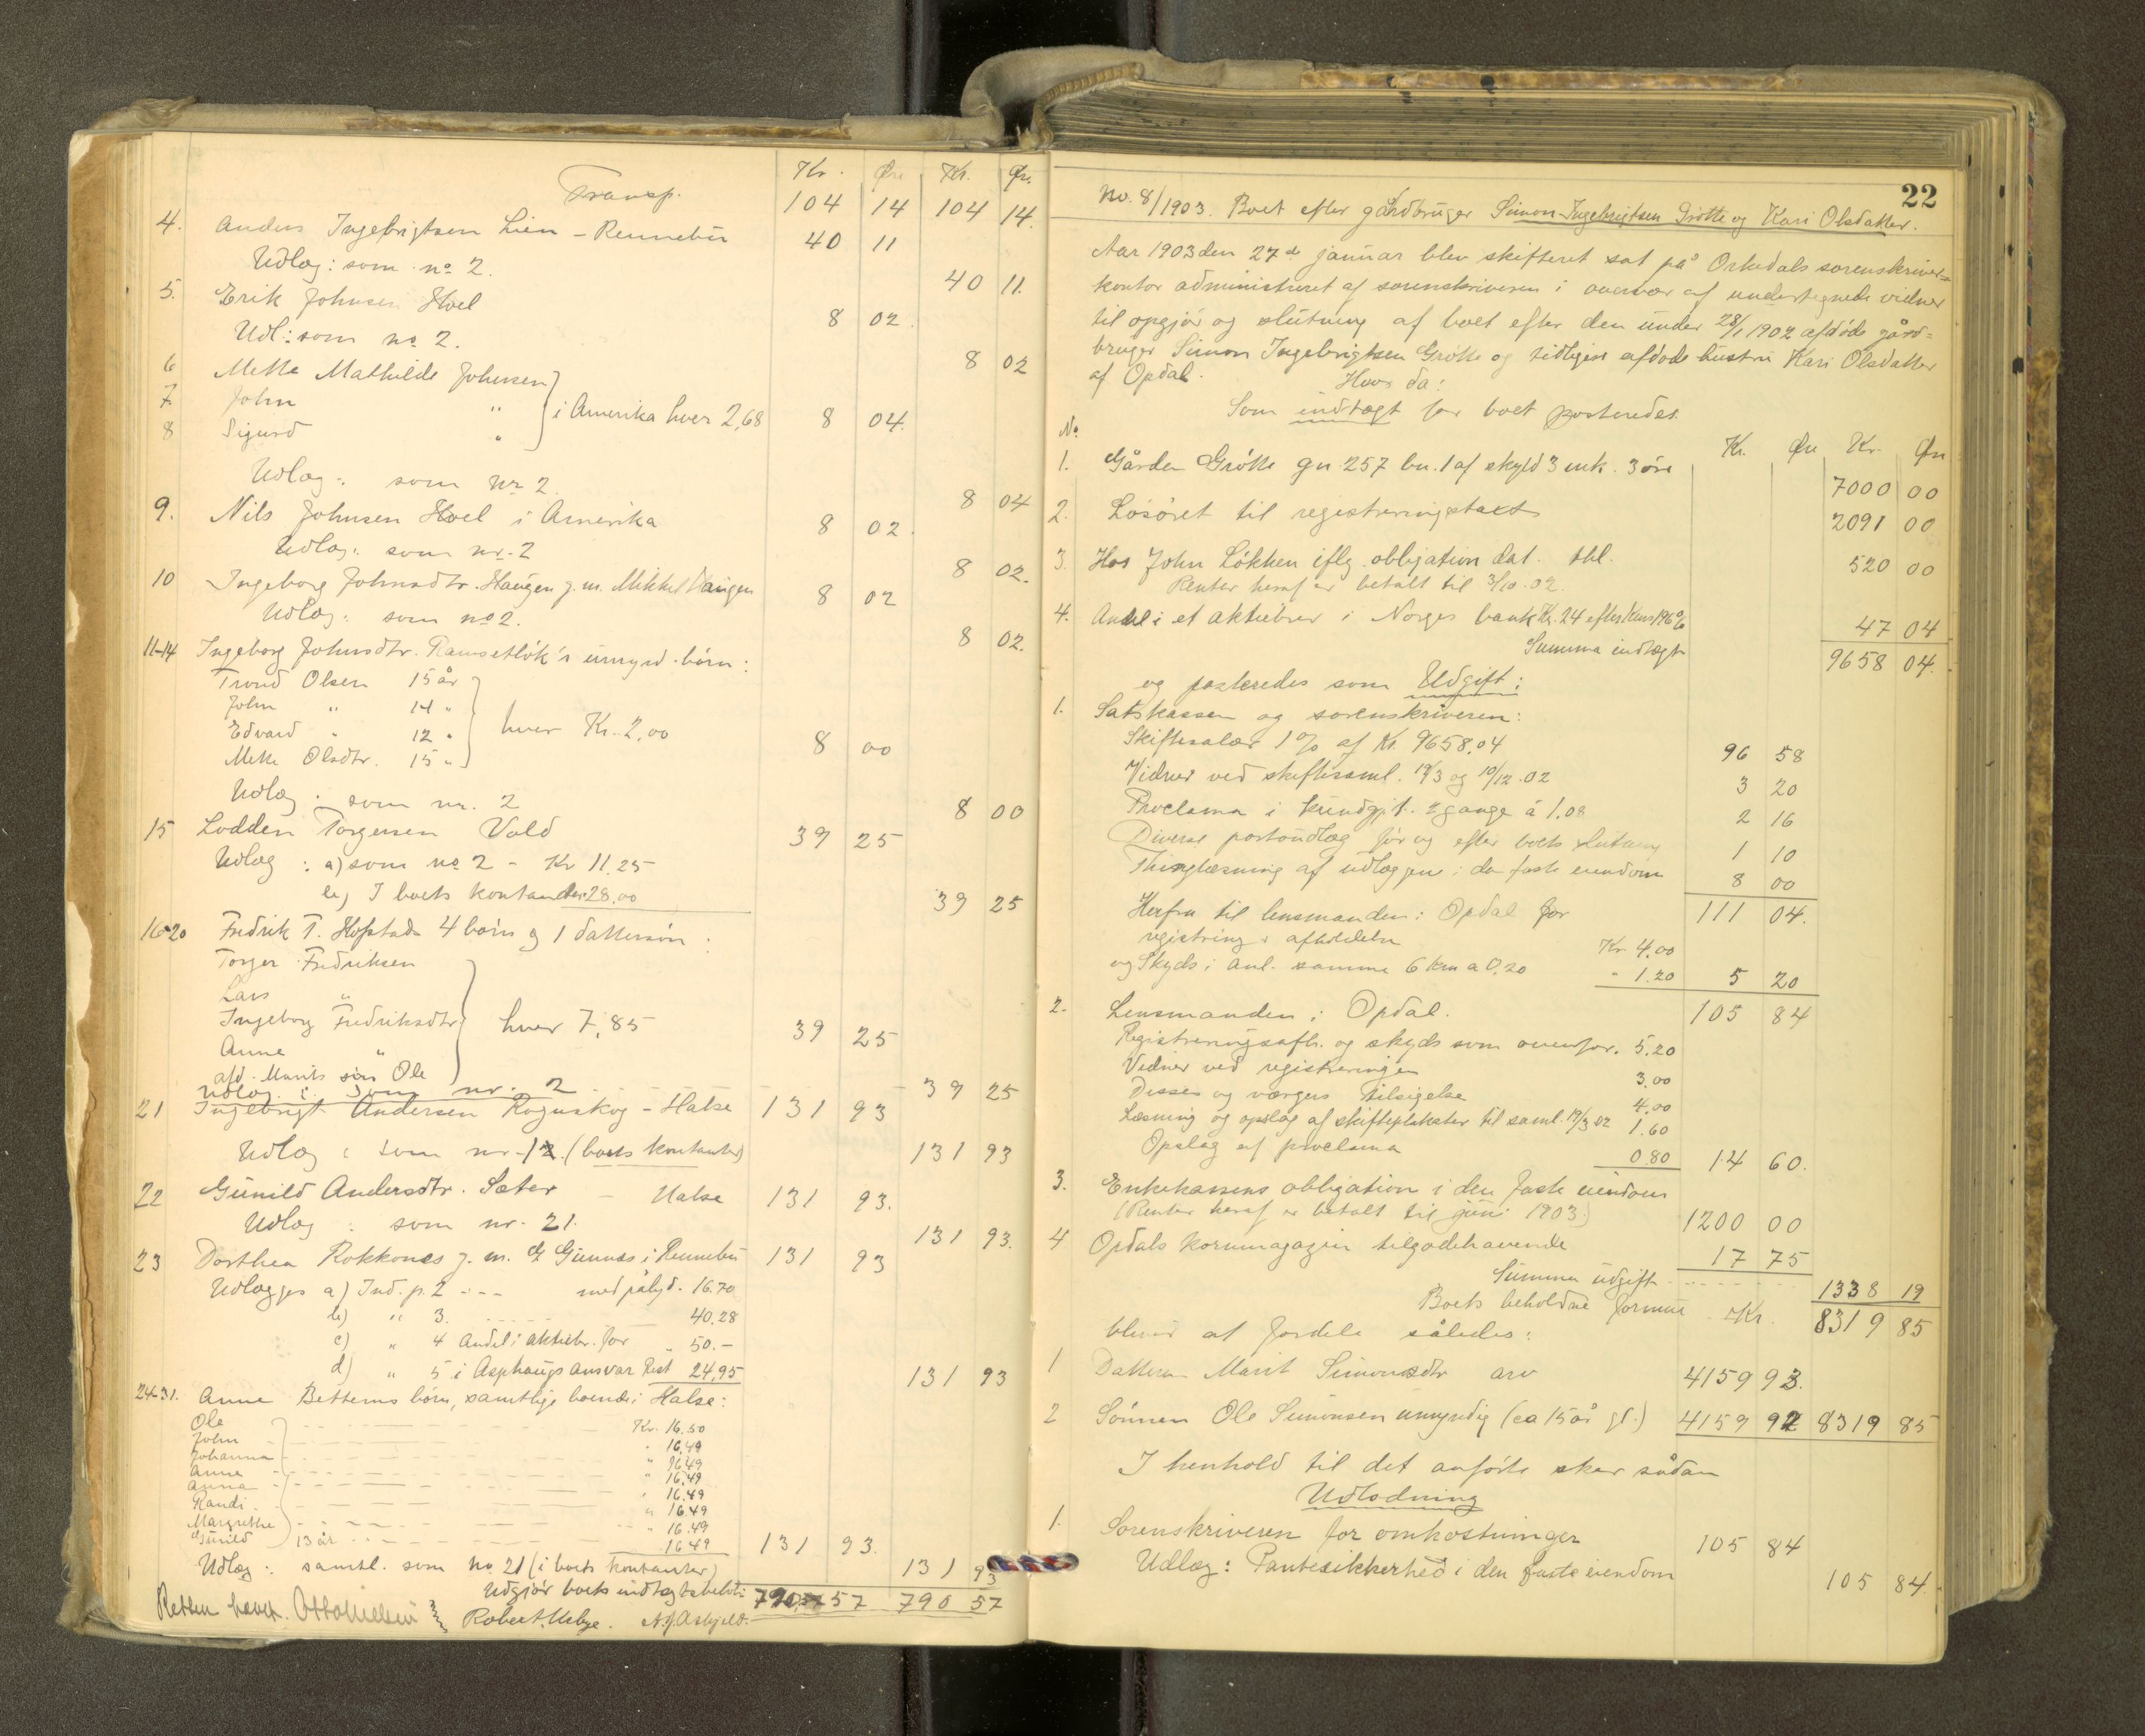 Kr. Øre Kr. Øre.
Transp. 104 14 104 14.
4. Anders Ingebrigtsen Lien - Rennebu 40 11
Udlæg: som no 2. 40 11.
5. Erik Johnsen Hoel 8 02.
Udl: som no 2. 8 02
6 Mette Mathilde Johnsen
7 John " i Amerika hver 2,68 8 04.
8 Sigurd "
Udlæg: som nr 2. 8 04
9. Nils Johnsen Hoel i Amerika 8 02.
Udlæg: som nr. 2 8 02.
10 Ingeborg Johnsdtr. Haugen g. m. Mikkel Haugen 8 02
Udlæg: som no 2. 8 02.
11-14 Ingeborg Johnsdtr. Ramsetløk's umynd. børn:
Trond Olsen 15 år
John " 14 "
Edvard " 12 " hver Kr. 2,00 8 00
Mette Olsdtr. 15 "
Udlæg: som nr. 2 8 00
15 Lodden Torgersen Vold 39 25
Udlæg: a) som no 2 - Kr 11.25
b) I boets kontanter 28.00 39 25
16-20 Fredrik T. Hofstads 4 børn og 1 dattersøn:
Torger Fredriksen
Lars "
Ingeborg Fredriksdtr hver 7,85 39 25
Anne "
afd. Marits søn Ole
Udlæg: som nr. 2 39 25
21 Ingebrigt Andersen Roguskog - Halse 131 93
Udlæg: som nr 12. (boets kontanter) 131 93
22 Gunild Andersdtr. Sæter - Halse 131 93.
Udlæg: som nr. 21. 131 93.
23 Dorthea Rokkones g. m. E Gunnes i Rennebu 131 93
Udlægges a) Ind. p. 2 --- med pålyd. 16.70
b) " 3. 40.28
c) " 4 Andel i aktiebr. for " 50.-
d) " 5 i Asphaugs ansvar Rest 24,95 131 93
24-31. Anne Betterns børn, samtlige boende i Halse:
Ole Kr. 16.50
John " 16.49
Johanna " 16.49
Anne " 16.49
Anna " 16.49
Randi " 16.49
Margrethe " 16.49
Gunild 13 år 16.49 131 93.
Udlæg: samtl. som no 21 (i boets kontanter) 131 93
Udgjør boets indtægtsbeløb: 790 57 790 57
Retten hævet. Otto Nielsen Robert Usbye. A. J. Askjeld.
22
No. 8/1903. Boet efter gårdbruger Simon Ingebrigtsen Grøtte og Kari Olsdatter.
Aar 1903 den 27de januar blev skifteret sat på Orkedals sorenskriver=
kontor administreret af sorenskriveren i overvær af undertegnede vidner
til opgjør og slutning af boet efter den under 28/1 1902 afdøde gård=
bruger Simon Ingebrigtsen Grøtte og tidligere afdøde hustru Kari Olsdatter
af Opdal. Hvor da:
Som indtægt for boet posteredes.
No. Kr. Øre Kr. Øre
1. Gården Grøtte gn 257 bn. 1 af skyld 3 mk. 3 øre 7000 00
2. Løsøret til registreringstakst 2091 00
3. Hos John Løkken iflg. obligation dat. tbl. 520 00
Renter heraf er betalt til 3/10.02.
4. Andel i et aktiebrev i Norges bank Kr. 24 efter Kurs 196% 47 04
Summa indtægt 9658 04.
og posteredes som Udgift:
1. Satskassen og sorenskriveren:
Skiftesalær 1% af Kr. 9658.04 96 58
Vidner ved skiftesaml. 19/3 og 10/12.02 3 20
Proclama i kundgjt. 2 gange á 1.08 2 16
Diverse portoudlæg før og efter boets slutning 1 10
Thinglæsning af udlæggene i den faste eiendom 8 00
Herfra til lensmanden i Opdal for 111 04.
registrings afholdelse Kr 4.00
og Skyds i anl. samme 6 km a 0.20 " 1.20 5 20
105 84
2. Lensmanden i Opdal.
Registreringsafh. og skyds som ovenfor. 5.20
Vidner ved registreringen 3.00
Disses og værgers tilsigelse 4.00
Læsning og opslag af skifteplakater til saml. 19/3 02 1.60
Opslag af proclama 0.80 14 60.
3. Enkekassens obligation i den faste eiendom
(Renter heraf er betalt til juni 1903.) 1200 00
4 Opdals kornmagazin tilgodehavende 17 75
Summa udgift 1338 19
Boets beholdne formue Kr. 8319 85
bliver at fordele således:
1 Datteren Marit Simonsdtr arv 4159 93.
2 Sønnen Ole Simonsen umyndig (ca 15 år gl.) 4159 92 8319 85
I henhold til det anførte sker sådan
Udlodning
1. Sorenskriveren for omkostninger 105 84
Udlæg: Pantesikkerhed i den faste eiendom 105 84.